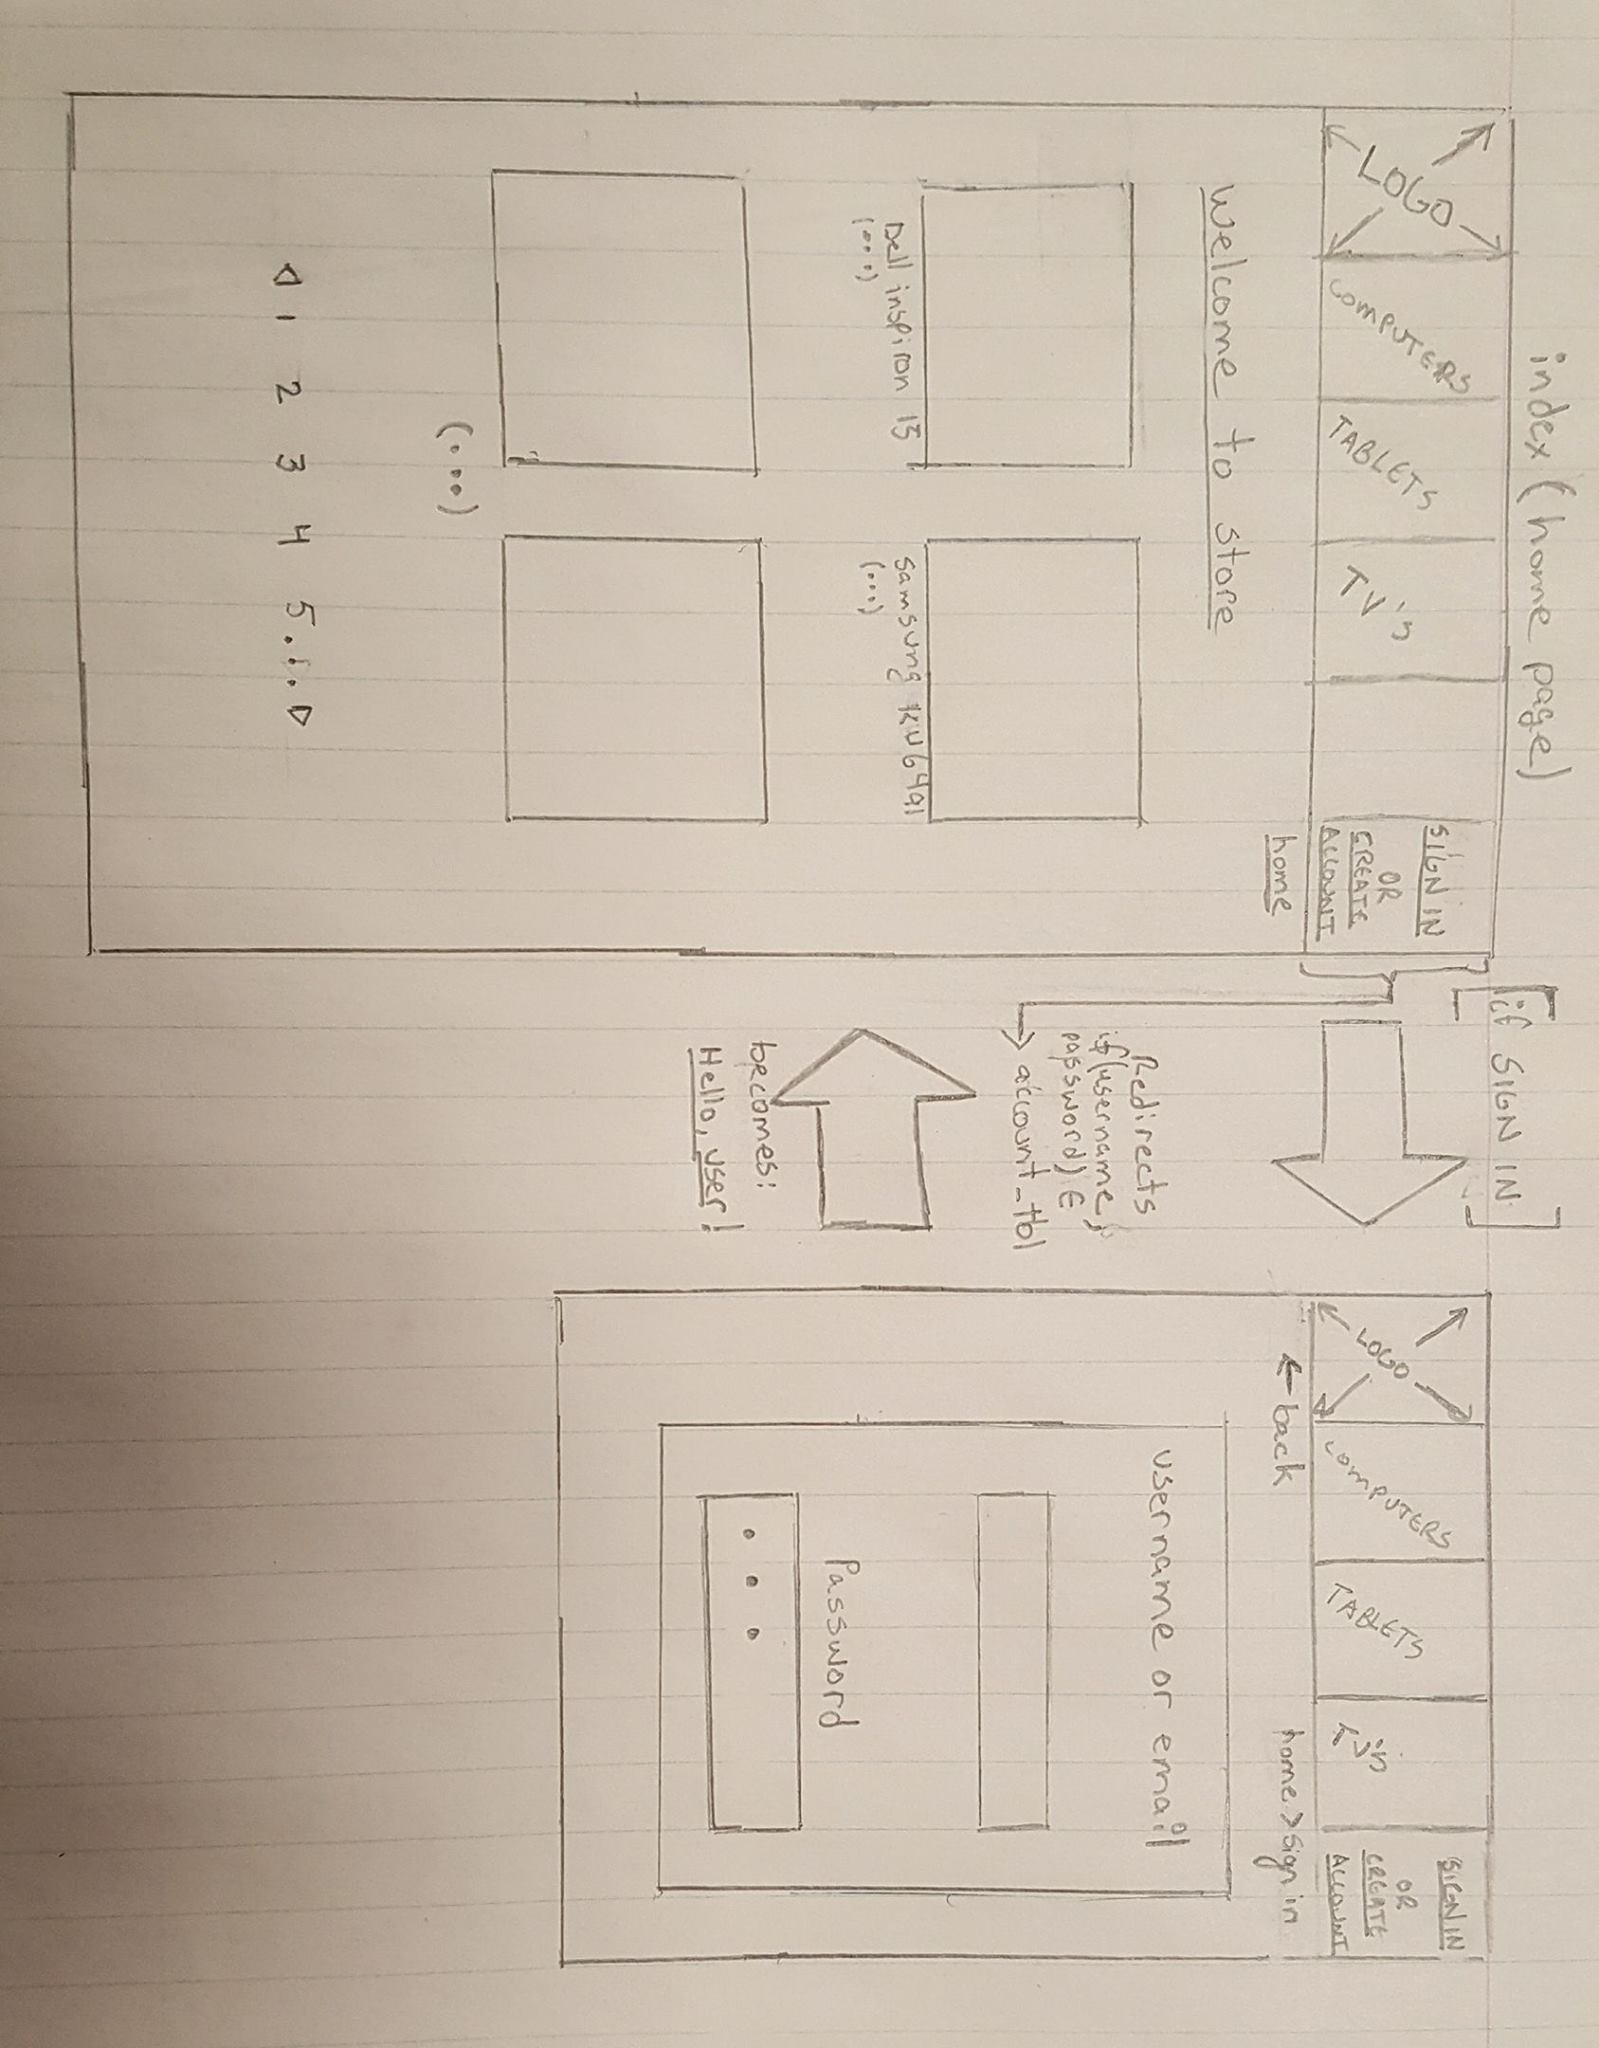 index (home page)
LOGO
COMPUTERS
TABLETS
TV's
SIGN IN
OR
CREATE
ACCOUNT
home
Welcome to store
Dell inspiron 15
(...)
samsung KU6491
(...)
(...)
◁ 1 2 3 4 5 ... ▷
[if SIGN IN]
Redirects
if(username,
password) ∈
account_tbl
becomes:
Hello, user!
LOGO
COMPUTERS
TABLETS
TV's
SIGN IN
OR
CREATE
ACCOUNT
← back
home > sign in
username or email
Password
• • •